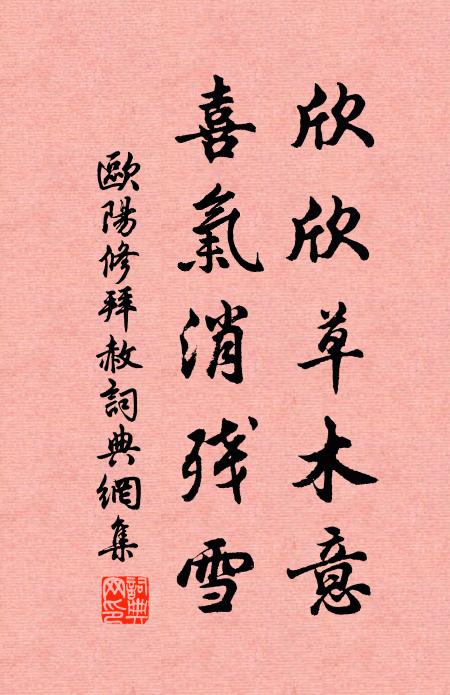 欣欣草木意
喜氣消残雪
歐陽修拜赦詞典網集
詞典網印